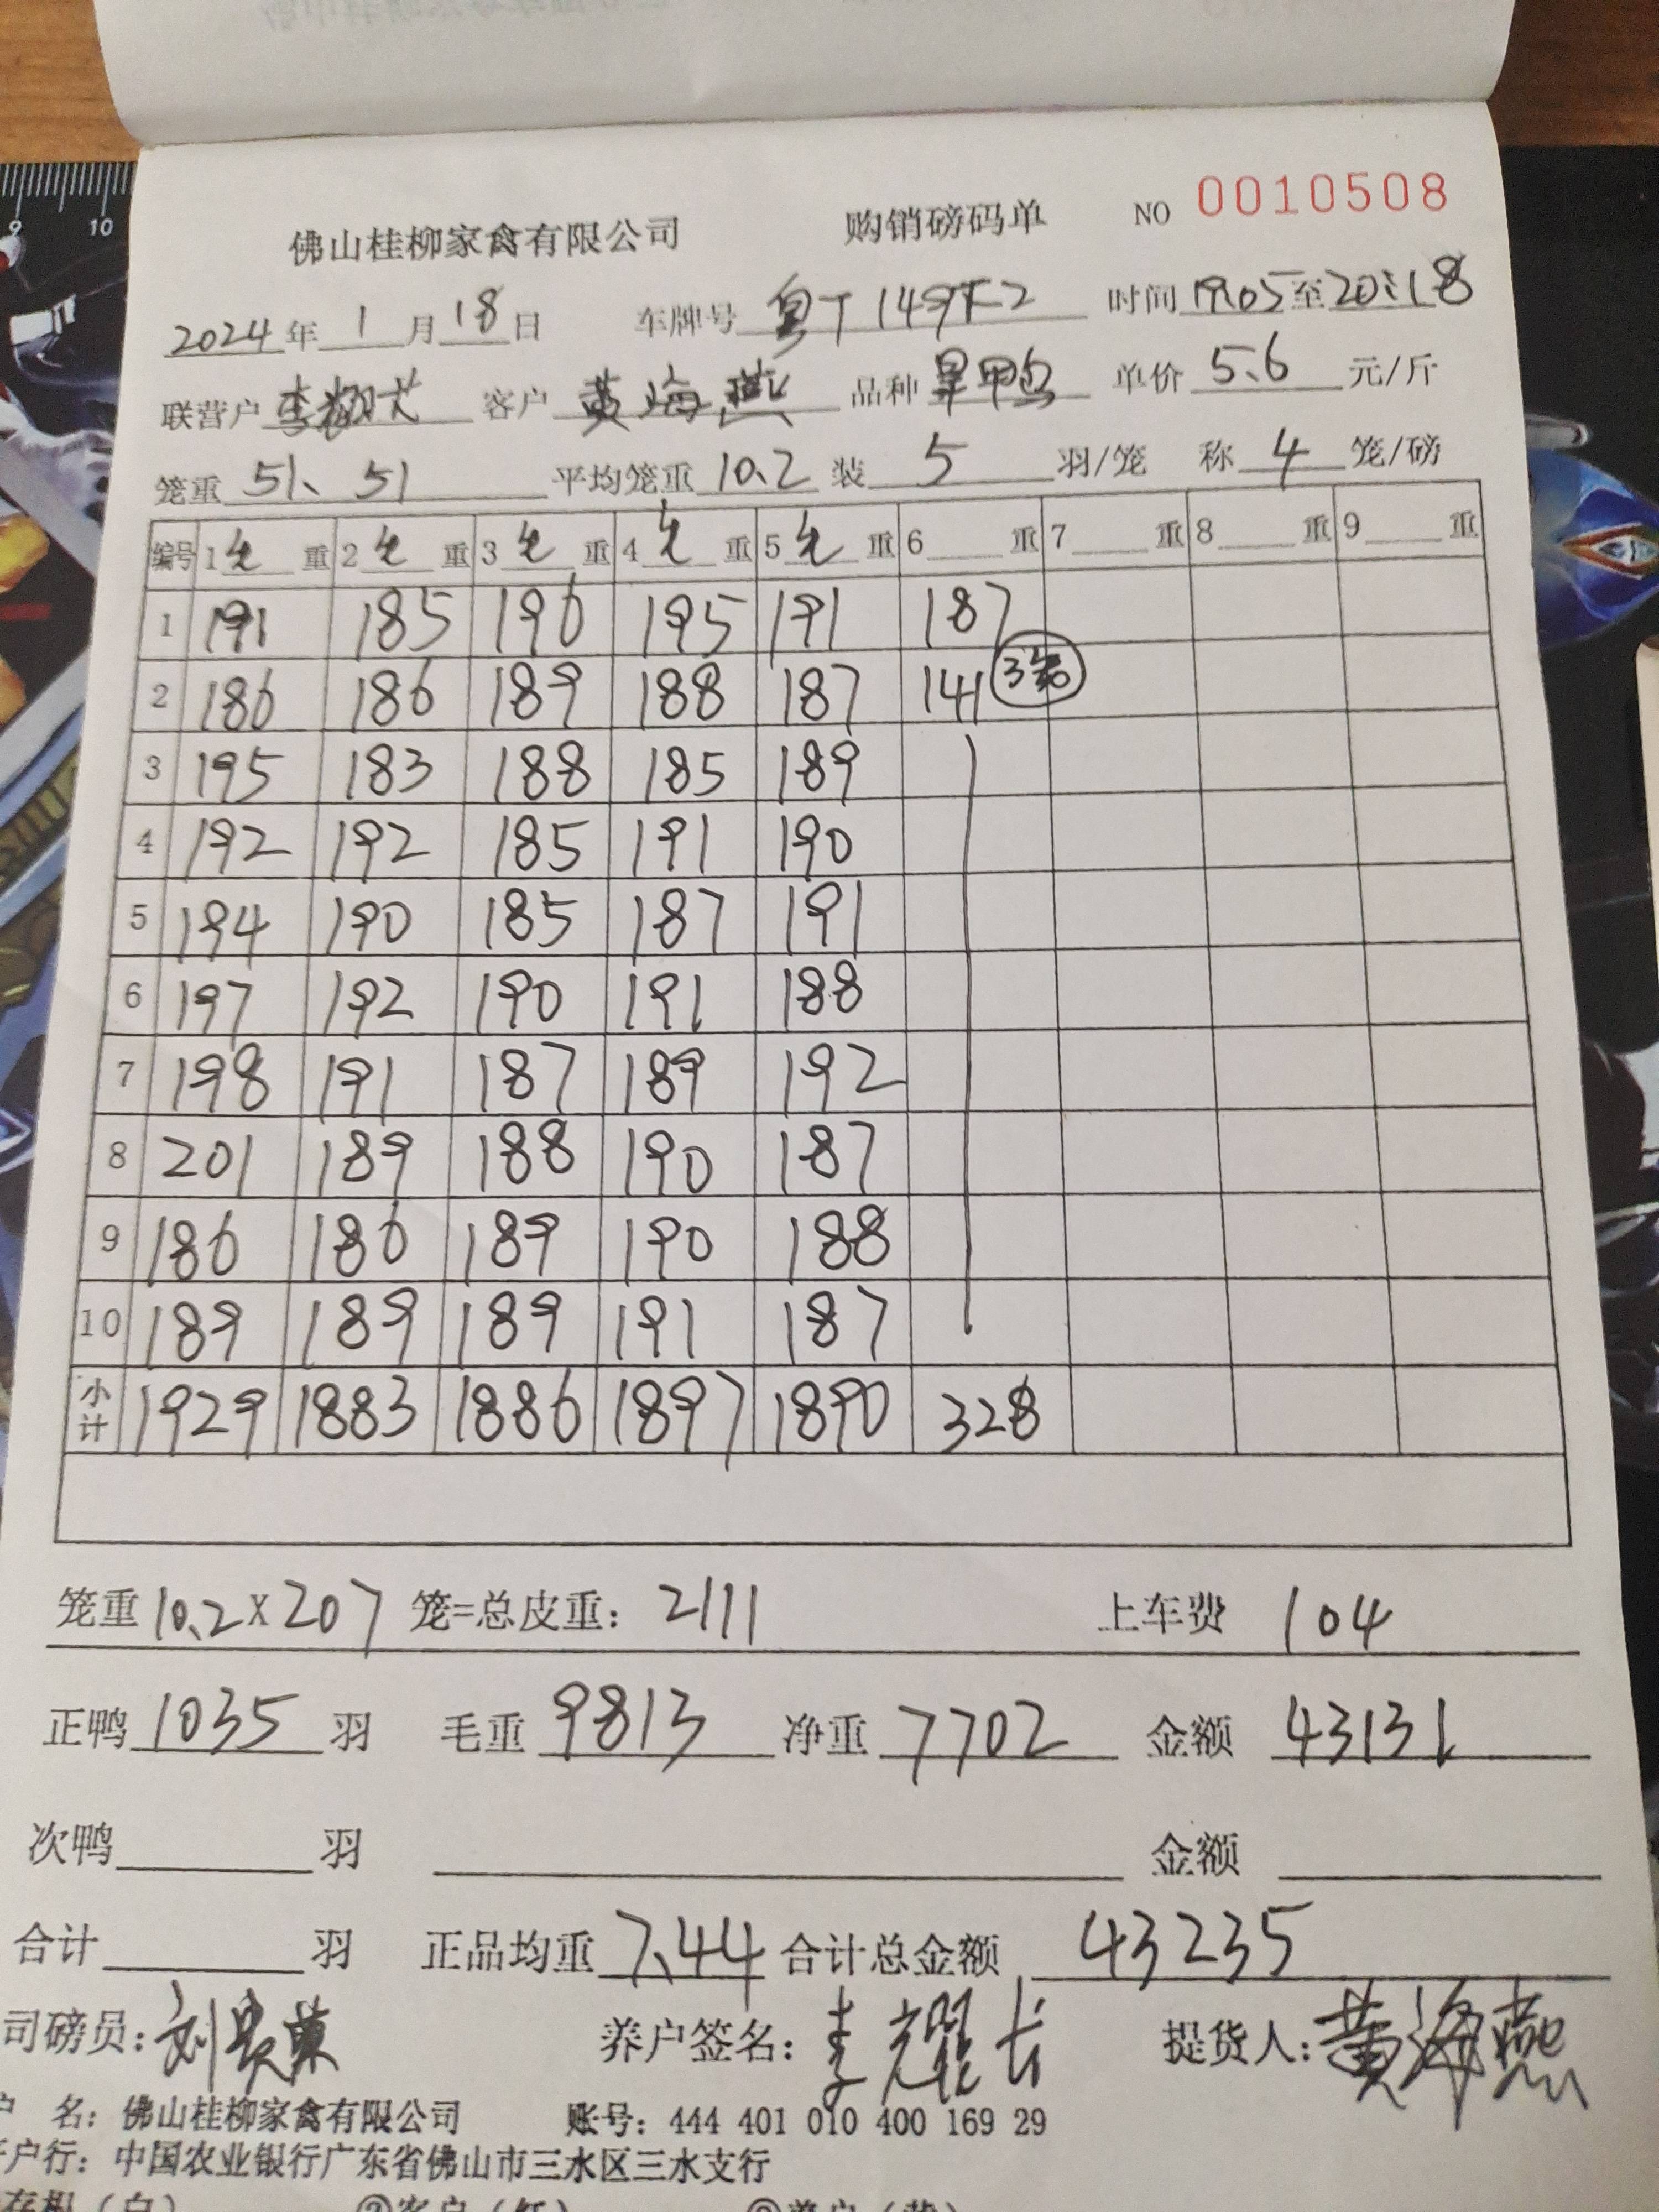 佛山桂柳家禽有限公司 购销磅码单 NO 0010508
2024年 1 月 18 日 车牌号 粤T 149 2 时间 19:05 至 20:18
联营户 李 客户 黄海燕 品种 旱鸭 单价 5.6 元/斤
笼重 51、51 平均笼重 10.2 装 5 羽/笼 称 4 笼/磅
编号 1 重 2 重 3 重 4 重 5 重 6 重 7 重 8 重 9 重
1 191 185 196 195 191 187
2 186 186 189 188 187 141 3笼
3 195 183 188 185 189
4 192 192 185 191 190
5 194 190 185 187 191
6 197 192 190 191 188
7 198 191 187 189 192
8 201 189 188 190 187
9 186 186 189 190 188
10 189 189 189 191 187
小计 1929 1883 1886 1897 1890 328
笼重 10.2 X 207 笼=总皮重: 2111 上车费 104
正鸭 1035 羽 毛重 9813 净重 7702 金额 43131
次鸭 羽 金额
合计 羽 正品均重 7.44 合计总金额 43235
司磅员: 刘 养户签名: 李耀长 提货人: 黄海燕
户 名: 佛山桂柳家禽有限公司 账号: 444 401 010 400 169 29
户行: 中国农业银行广东省佛山市三水区三水支行
存根(白) ②客户(红) ③养户(黄)